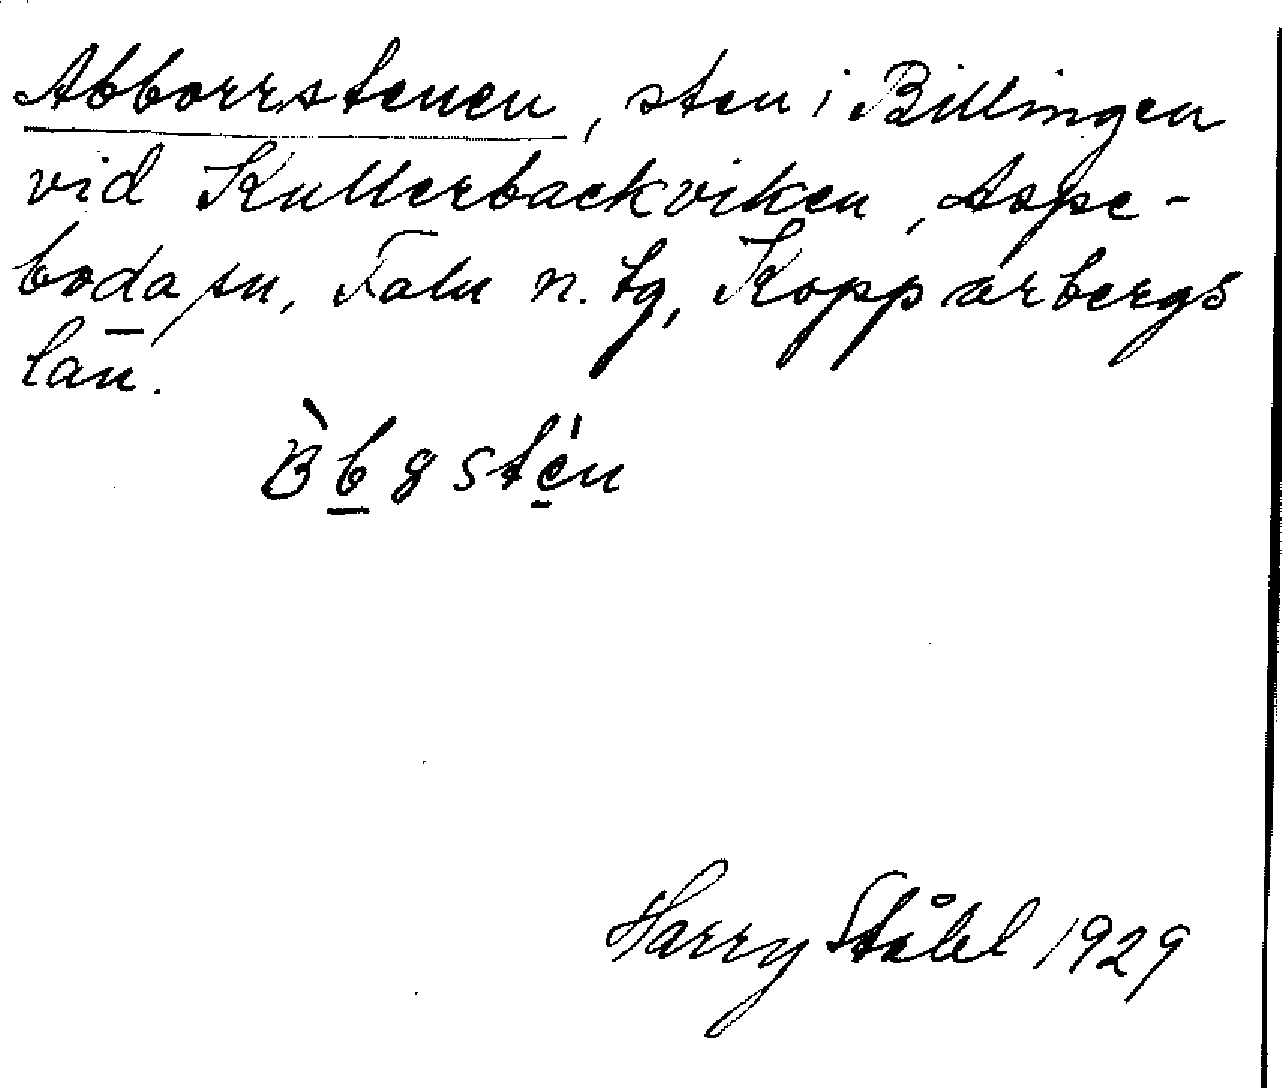 Abborrstenen, sten i Billingen
vid Kullerbackviken, Aspe-
boda sn, Falu n. tg, Kopparbergs
län.
Harry Ståhl 1929